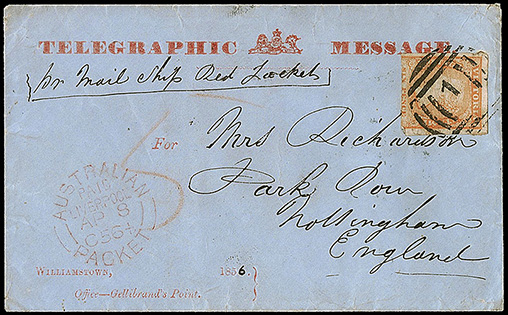 TELEGRAPHIC MESSAGE
pr Mail Ship Red Jacket
For Mrs Richardson
Park Row
Nottingham
England
AUSTRALIAN
PAID
LIVERPOOL
AP 8
PACKET
WILLIAMSTOWN, 1856.
Office—Gellibrand's Point.